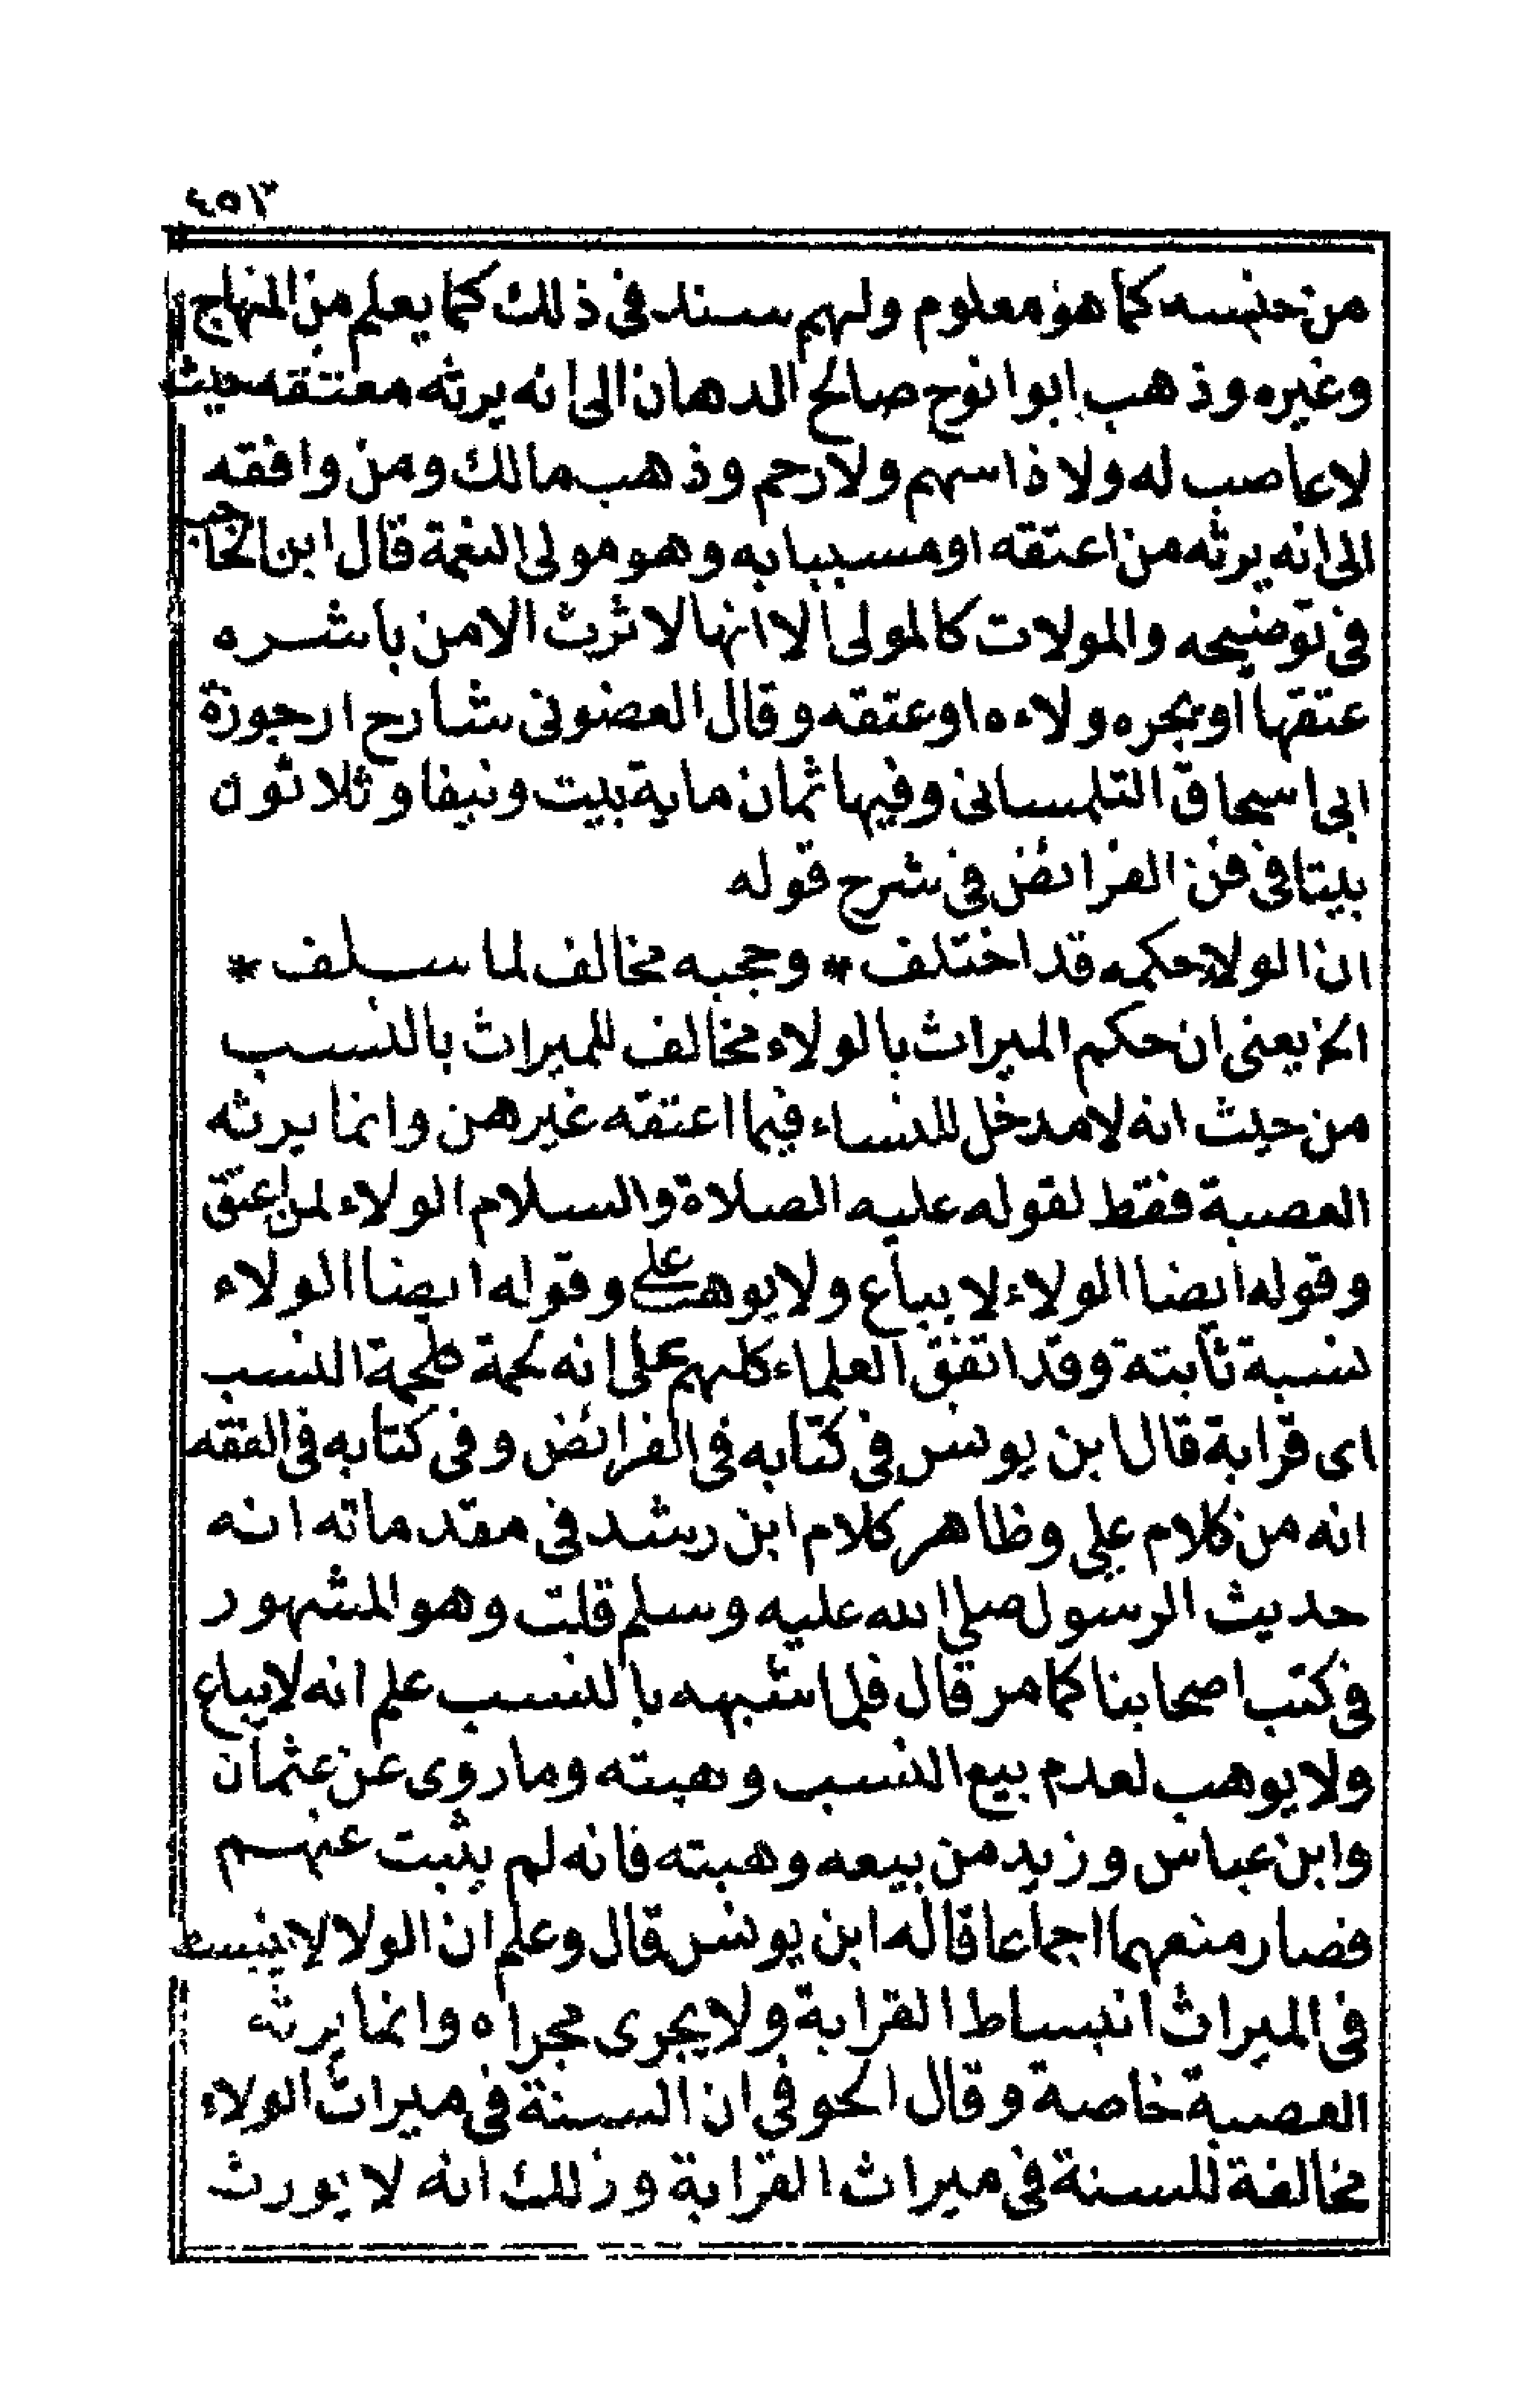 ٤٥٣
من جنسه كما هو معلوم ولهم سند فى ذلك كما يعلم من المنهاج
وغيره وذهب ابوا نوح صالح الدهان الى انه يرثه معتقه حيث
لا عاصب له ولا ذا سهم ولا رحم وذهب مالك ومن وافقه
الى انه يرثه من اعتقه او مسببا به وهو مولى النعمة قال ابن الحاجب
فى توضيحه والمولات كالمولى الا انها لا ترث الا من باشره
عتقها او يجره ولاءه او عتقه وقال العضونى شارح ارجوزة
ابى اسحاق التلمسانى وفيها ثمان ماية بيت ونيفا وثلاثون
بيتا فى فن الفرائض فى شرح قوله
ان الولا حكمه قد اختلف * وحجبه مخالف لما سلف *
الخ يعنى ان حكم الميراث بالولاء مخالف للميراث بالنسب
من حيث انه لا مدخل للنساء فيما اعتقه غيرهن وانما يرثه
العصبة فقط لقوله عليه الصلاة والسلام الولاء لمن اعتق
وقوله ايضا الولاء لا يباع ولا يوهب وقوله ايضا الولاء
نسبة ثابتة وقد اتفق العلماء كلهم على انه لحمة كلحمة النسب
اى قرابة قال ابن يونس فى كتابه فى الفرائض وفى كتابه فى الفقه
انه من كلام على وظاهر كلام ابن رشد فى مقدماته انه
حديث الرسول صلى الله عليه وسلم قلت وهو المشهور
فى كتب اصحابنا كما مر قال فلما شبهه بالنسب علم انه لا يباع
ولا يوهب لعدم بيع النسب وهبته وما روى عن عثمان
وابن عباس وزيد من بيعه وهبته فانه لم يثبت عنهم
فصار منعهما اجماعا قاله ابن يونس قال وعلم ان الولا لا ينبسط
فى الميراث انبساط القرابة ولا يجرى مجراه وانما يرثه
العصبة خاصة وقال الحوفى ان السنة فى ميراث الولاء
مخالفة للسنة فى ميراث القرابة وذلك انه لا يورث